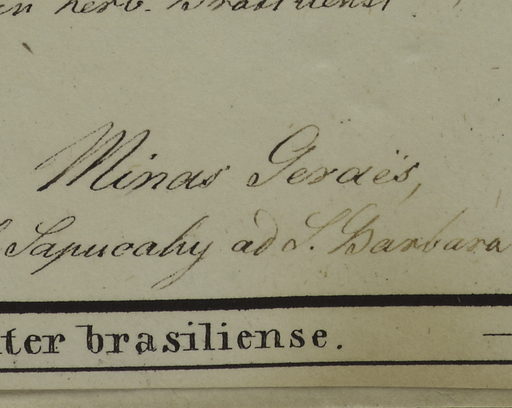 in herb. Brasiliensi
Minas Geraës,
Sapucahy ad S. Barbara
iter brasiliense.